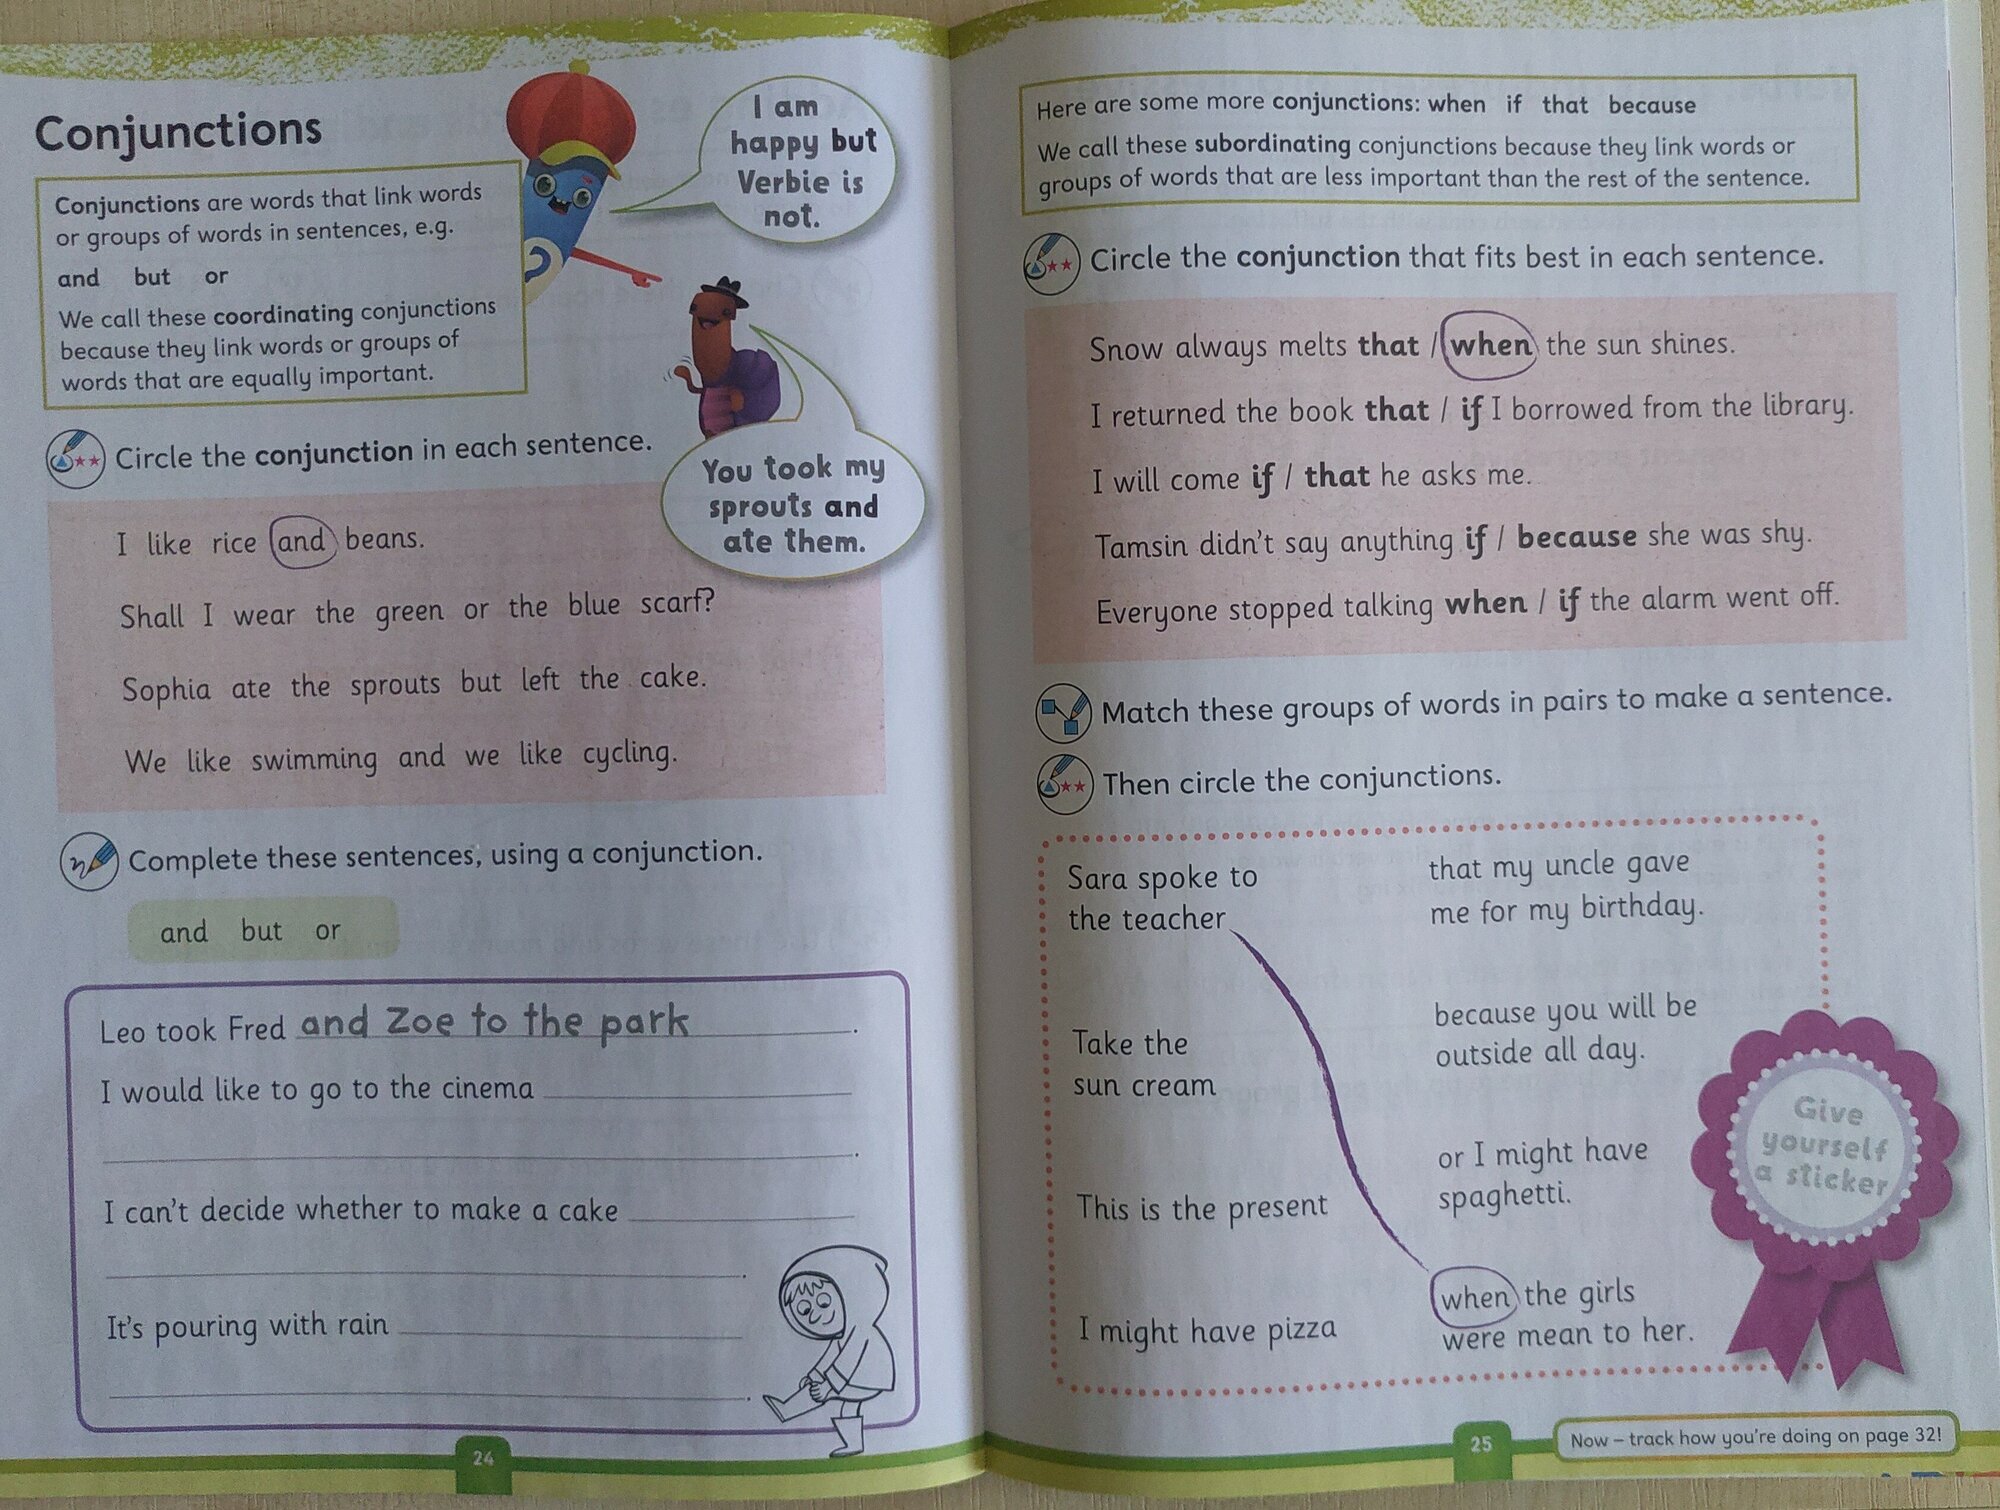 Conjunctions
Conjunctions are words that link words
or groups of words in sentences, e.g.
and but or
We call these coordinating conjunctions
because they link words or groups of
words that are equally important.
I am
happy but
Verbie is
not.
You took my
sprouts and
ate them.
Circle the conjunction in each sentence.
I like rice and beans.
Shall I wear the green or the blue scarf?
Sophia ate the sprouts but left the cake.
We like swimming and we like cycling.
Complete these sentences, using a conjunction.
and but or
Leo took Fred and Zoe to the park.
I would like to go to the cinema
.
I can't decide whether to make a cake
.
It's pouring with rain
.
24
Here are some more conjunctions: when if that because
We call these subordinating conjunctions because they link words or
groups of words that are less important than the rest of the sentence.
Circle the conjunction that fits best in each sentence.
Snow always melts that / when the sun shines.
I returned the book that / if I borrowed from the library.
I will come if / that he asks me.
Tamsin didn't say anything if / because she was shy.
Everyone stopped talking when / if the alarm went off.
Match these groups of words in pairs to make a sentence.
Then circle the conjunctions.
Sara spoke to
the teacher
that my uncle gave
me for my birthday.
Take the
sun cream
because you will be
outside all day.
This is the present
or I might have
spaghetti.
I might have pizza
when the girls
were mean to her.
Give
yourself
a sticker
25
Now – track how you're doing on page 32!